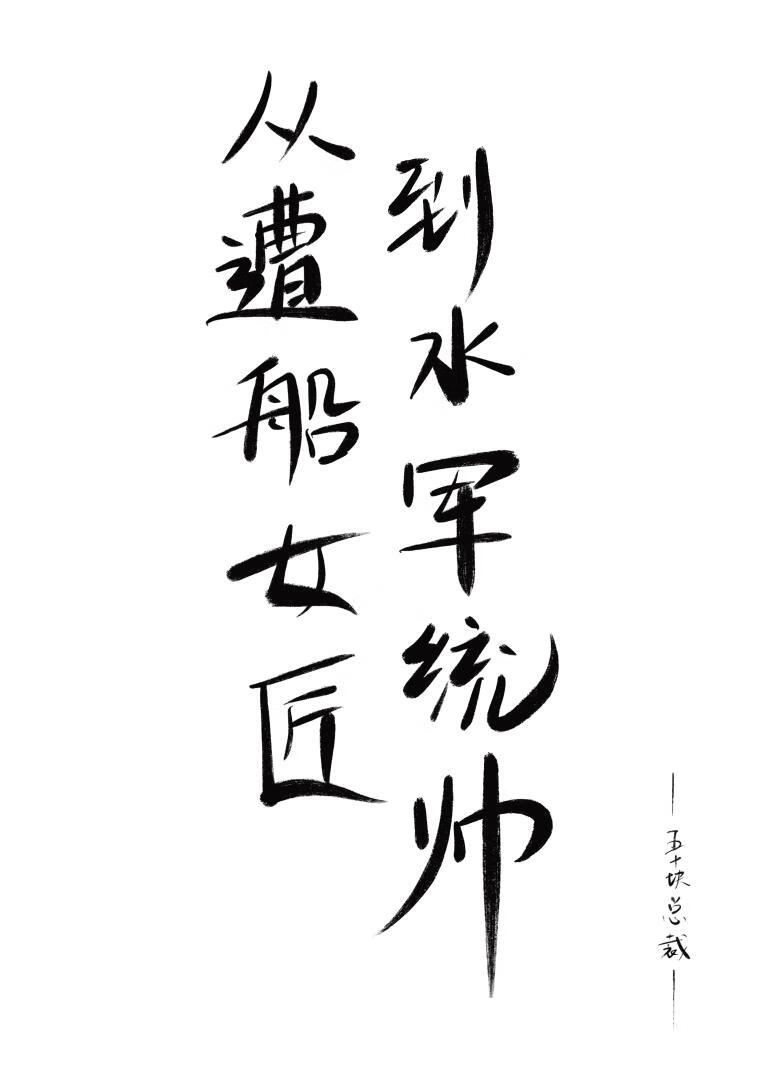 从遭船女匠
到水军统帅
—五十块总裁—